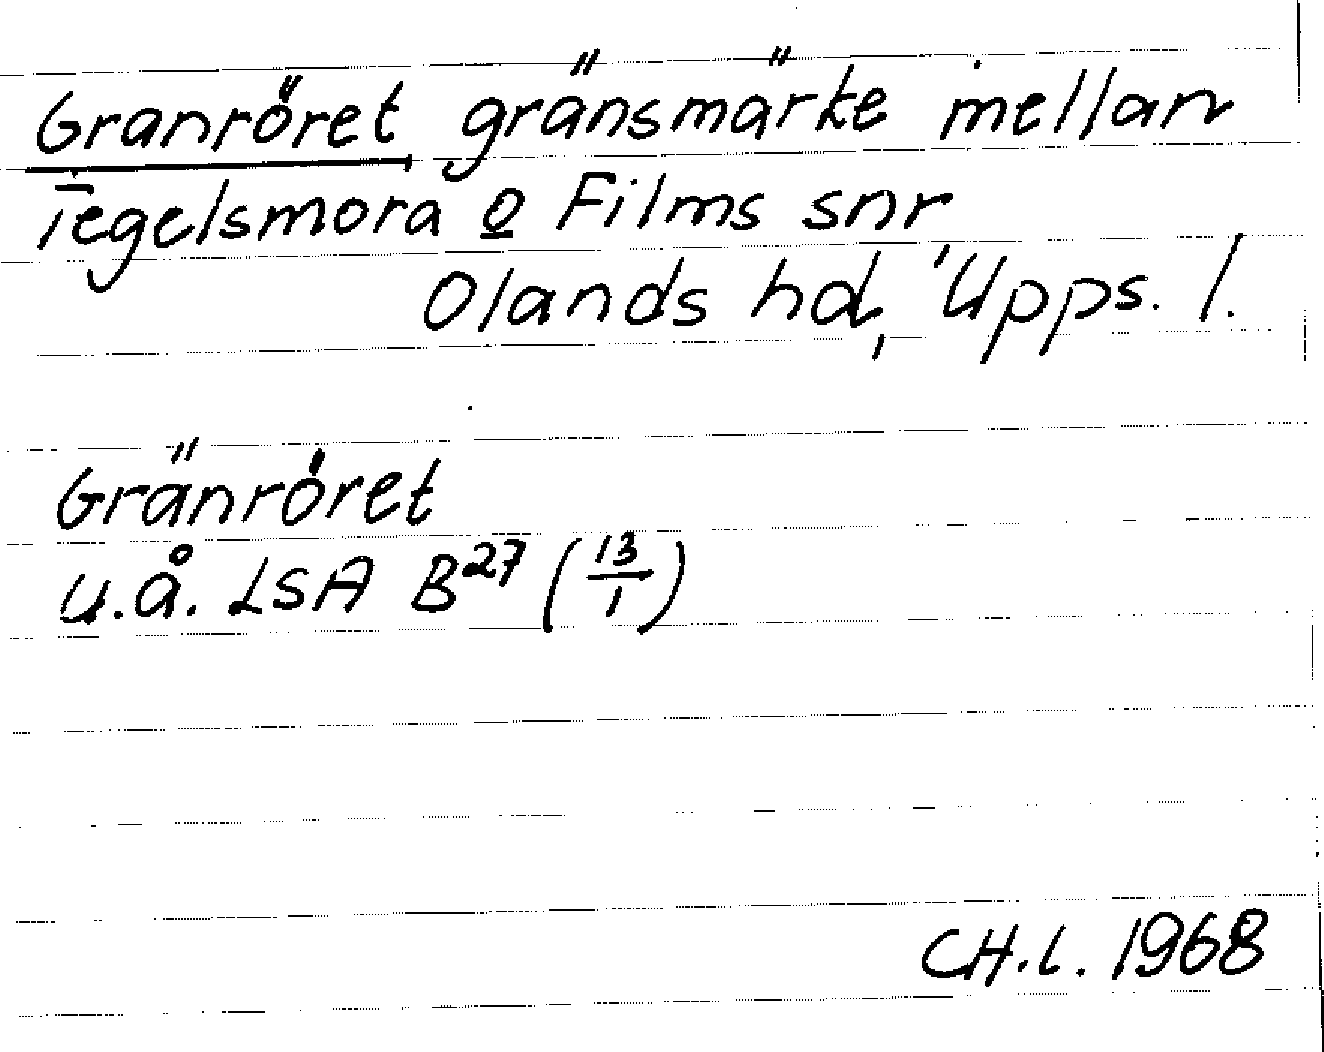 Granröret gränsmärke mellan
Tegelsmora o Films snr
Olands hd, Upps. l.
Gränröret
u.å. LSA B27 (13/1)
CH.L. 1968